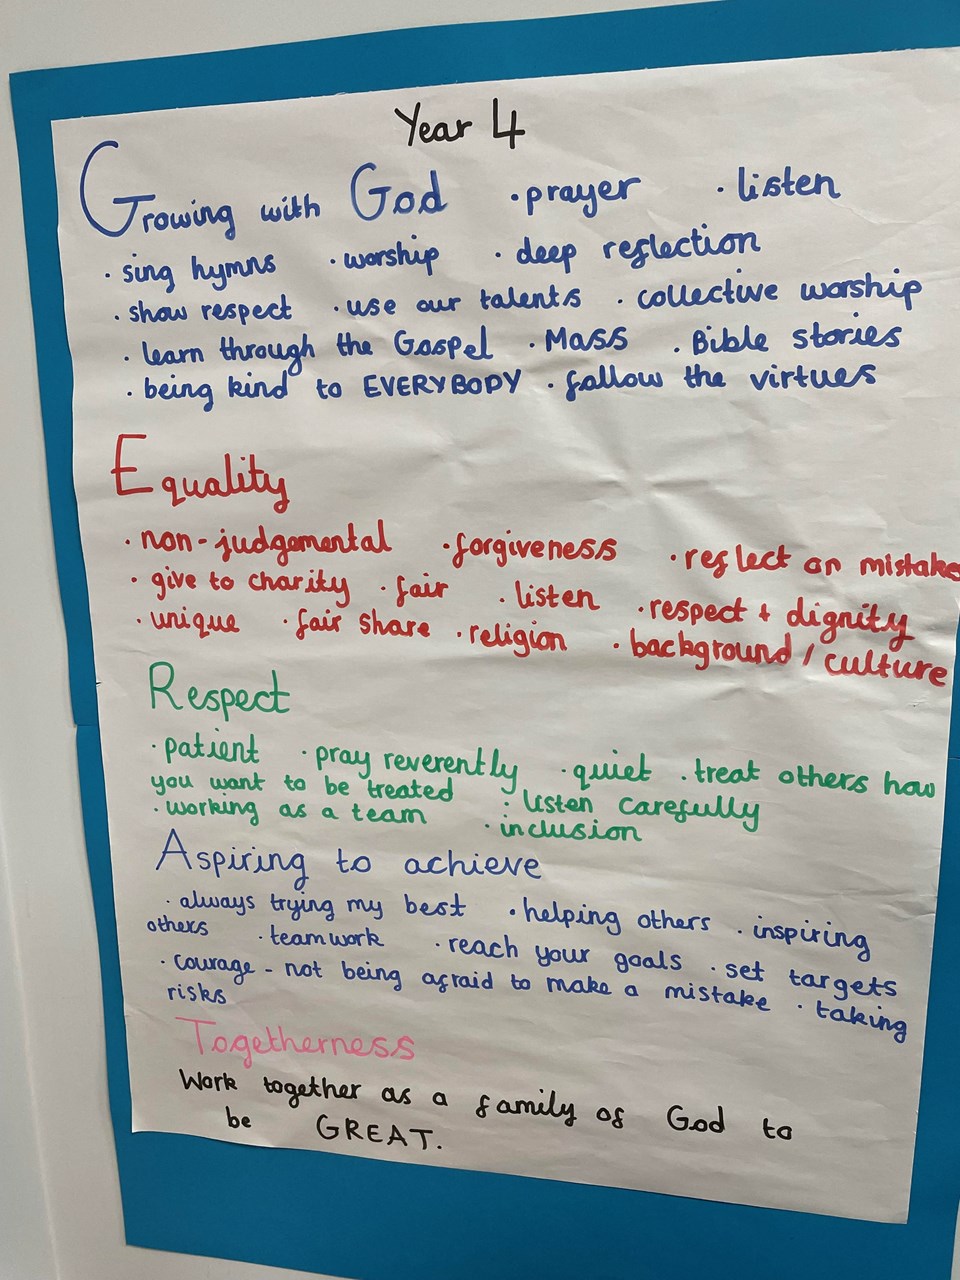 Year 4
Growing with God · prayer · listen
· sing hymns · worship · deep reflection
· show respect · use our talents · collective worship
· learn through the Gospel · Mass · Bible stories
· being kind to EVERYBODY · follow the virtues
Equality
· non-judgemental · forgiveness · reflect on mistake
· give to charity · fair · listen · respect + dignity
· unique · fair share · religion · background / culture
Respect
· patient · pray reverently · quiet · treat others how
you want to be treated · listen carefully
· working as a team · inclusion
Aspiring to achieve
· always trying my best · helping others · inspiring
others · teamwork · reach your goals · set targets
· courage - not being afraid to make a mistake · taking
risks
Togetherness
Work together as a family of God to
be GREAT.